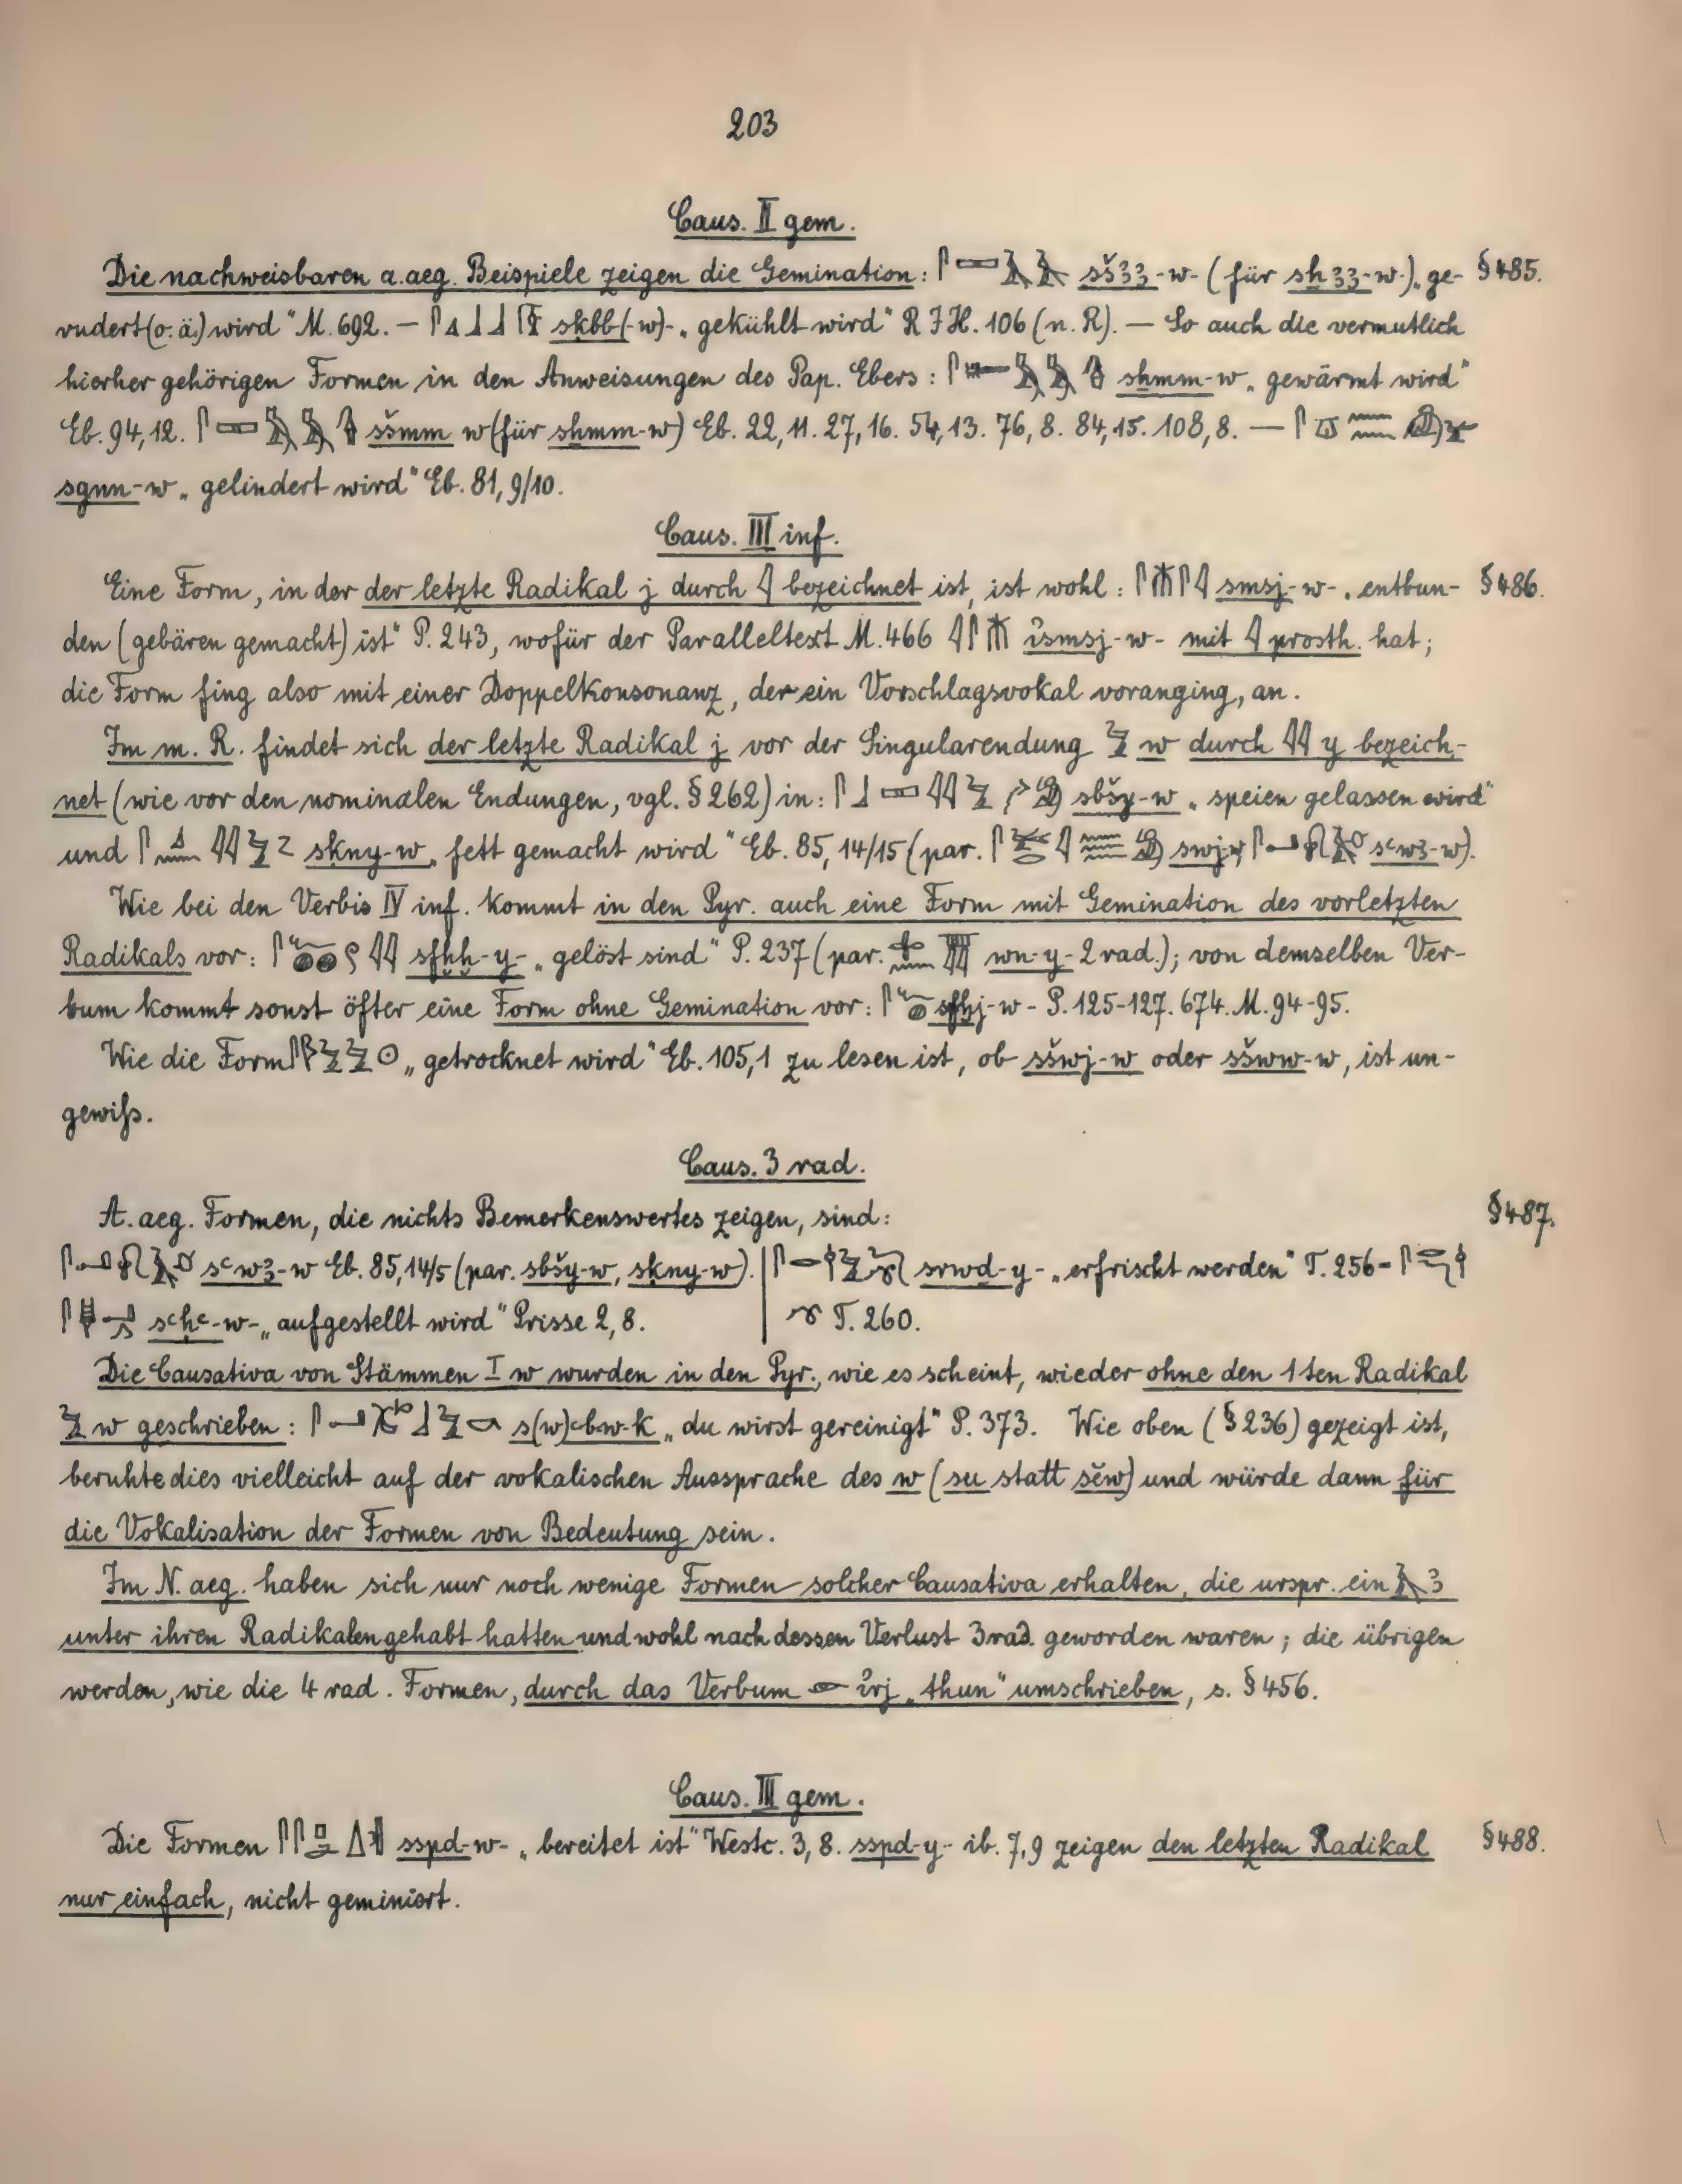 203
Caus. II gem.
Die nachweisbaren a.aeg. Beispiele zeigen die Gemination: sš33-w- (für sh33-w-) „ge- §485.
rudert (o.ä.) wird“ M. 692. — skbb(-w)- „gekühlt wird“ R I H. 106 (n. R). — So auch die vermutlich
hierher gehörigen Formen in den Anweisungen des Pap. Ebers: shmm-w „gewärmt wird“
Eb. 94, 12. sšmm w (für shmm-w) Eb. 22, 11. 27, 16. 54, 13. 76, 8. 84, 15. 108, 8. —
sgnn-w „gelindert wird“ Eb. 81, 9/10.
Caus. III inf.
Eine Form, in der der letzte Radikal j durch 𓇋 bezeichnet ist, ist wohl: smsj-w- „entbun- §486.
den (gebären gemacht) ist“ P. 243, wofür der Paralleltext M. 466 i̓smsj-w- mit 𓇋 prosth. hat;
die Form fing also mit einer Doppelkonsonanz, der ein Vorschlagsvokal voranging, an.
Im m. R. findet sich der letzte Radikal j vor der Singularendung 𓅱 w durch 𓇌 y bezeich-
net (wie vor den nominalen Endungen, vgl. § 262) in: sbšy-w „speien gelassen wird“
und skny-w „fett gemacht wird“ Eb. 85, 14/15 (par. swj-w, sꜥw3-w).
Wie bei den Verbis IV inf. kommt in den Pyr. auch eine Form mit Gemination des vorletzten
Radikals vor: sfḫḫ-y- „gelöst sind“ P. 237 (par. wn-y- 2 rad.); von demselben Ver-
bum kommt sonst öfter eine Form ohne Gemination vor: sfḫj-w- P. 125-127. 674. M. 94-95.
Wie die Form „getrocknet wird“ Eb. 105, 1 zu lesen ist, ob sšwj-w oder sšww-w, ist un-
gewiß.
Caus. 3 rad.
A. aeg. Formen, die nichts Bemerkenswertes zeigen, sind: §487.
sꜥw3-w Eb. 85, 14/5 (par. sbšy-w, skny-w). | srwd-y- „erfrischt werden“ T. 256 =
sꜥḥꜥ-w- „aufgestellt wird“ Prisse 2, 8. | T. 260.
Die Causativa von Stämmen I w wurden in den Pyr., wie es scheint, wieder ohne den 1ten Radikal
𓅱 w geschrieben: s(w)ꜥb-w-k „du wirst gereinigt“ P. 373. Wie oben (§ 236) gezeigt ist,
beruhte dies vielleicht auf der vokalischen Aussprache des w (su statt sĕw) und würde dann für
die Vokalisation der Formen von Bedeutung sein.
Im N. aeg. haben sich nur noch wenige Formen solcher Causativa erhalten, die urspr. ein 𓄿 3
unter ihren Radikalen gehabt hatten und wohl nach dessen Verlust 3 rad. geworden waren; die übrigen
werden, wie die 4 rad. Formen, durch das Verbum 𓁹 i̓rj „thun“ umschrieben, s. § 456.
Caus. III gem.
Die Formen sspd-w- „bereitet ist“ Westc. 3, 8. sspd-y- ib. 7, 9 zeigen den letzten Radikal §488.
nur einfach, nicht geminiert.